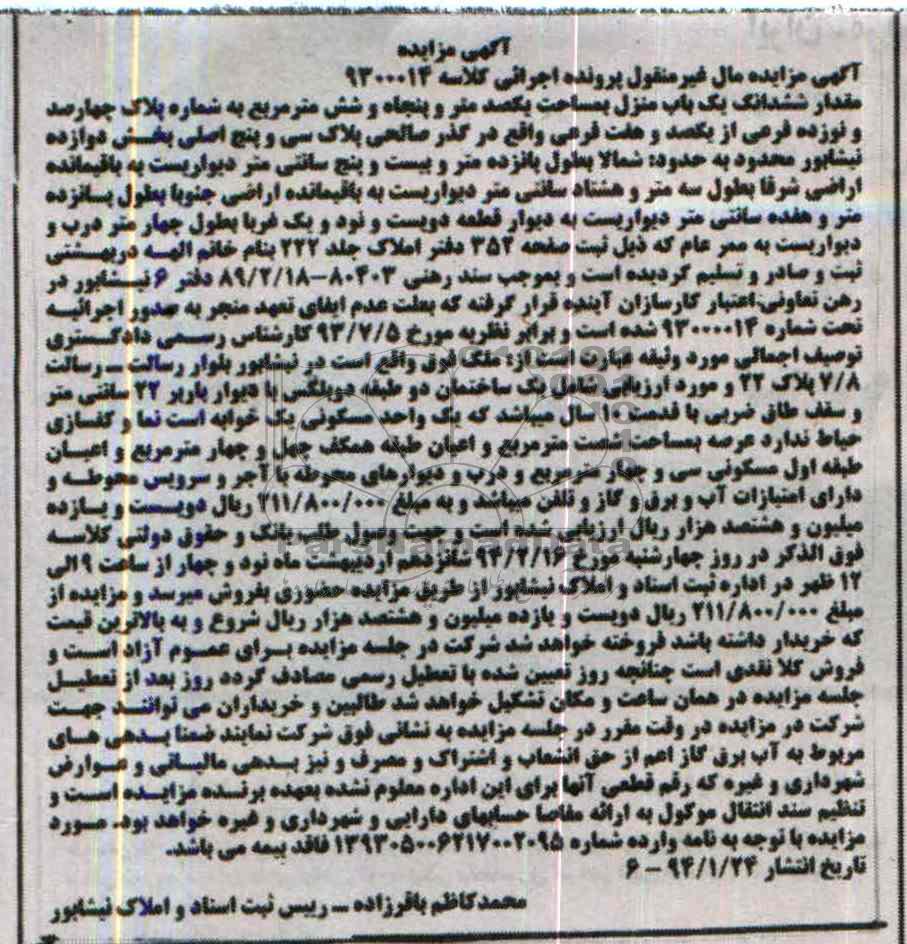 آگهی مزایده
آگهی مزایده مال غیرمنقول پرونده اجرائی کلاسه ۹۳۰۰۰۱۴
مقدار ششدانگ یک باب منزل بمساحت یکصد متر و پنجاه و شش مترمربع به شماره پلاک چهارصد
و نوزده فرعی از یکصد و هفت فرعی واقع در گذر صالحی پلاک سی و پنج اصلی بخش دوازده
نیشابور محدود به حدود: شمالا بطول پانزده متر و بیست و پنج سانتی متر دیواریست به باقیمانده
اراضی شرقا بطول سه متر و هشتاد سانتی متر دیواریست به باقیمانده اراضی جنوبا بطول پانزده
متر و هفده سانتی متر دیواریست به دیوار قطعه دویست و نود و یک غربا بطول چهار متر درب و
دیواریست به ممر عام که ذیل ثبت صفحه ۳۵۲ دفتر املاک جلد ۲۲۲ بنام خانم الهه دربهشتی
ثبت و صادر و تسلیم گردیده است و بموجب سند رهنی ۸۰۴۰۳-۸۹/۲/۱۸ دفتر ۶ نیشابور در
رهن تعاونی اعتبار کارسازان آینده قرار گرفته که بعلت عدم ایفای تعهد منجر به صدور اجرائیه
تحت شماره ۹۳۰۰۰۰۱۴ شده است و برابر نظریه مورخ ۹۳/۷/۵ کارشناس رسمی دادگستری
توصیف اجمالی مورد وثیقه عبارد است از: ملک فوق واقع است در نیشابور بلوار رسالت ــ رسالت
۷/۸ پلاک ۲۲ و مورد ارزیابی شامل یک ساختمان دو طبقه دوبلکس با دیوار باربر ۲۲ سانتی متر
و سقف طاق ضربی با قدمت ۱۰ سال میباشد که یک واحد مسکونی یک خوابه است نما و کفسازی
حیاط ندارد عرصه بمساحت شصت مترمربع و اعیان طبقه همکف چهل و چهار مترمربع و اعیان
طبقه اول مسکونی سی و چهار مترمربع و درب و دیوارهای محوطه با آجر و سرویس محوطه و
دارای امتیازات آب و برق و گاز و تلفن میباشد و به مبلغ ۲۱۱/۸۰۰/۰۰۰ ریال دویست و یازده
میلیون و هشتصد هزار ریال ارزیابی شده است و جهت وصول طلب بانک و حقوق دولتی کلاسه
فوق الذکر در روز چهارشنبه مورخ ۹۴/۲/۱۶ شانزدهم اردیبهشت ماه نود و چهار از ساعت ۹ الی
۱۲ ظهر در اداره ثبت اسناد و املاک نیشابور از طریق مزایده حضوری بفروش میرسد و مزایده از
مبلغ ۲۱۱/۸۰۰/۰۰۰ ریال دویست و یازده میلیون و هشتصد هزار ریال شروع و به بالاترین قیمت
که خریدار داشته باشد فروخته خواهد شد شرکت در جلسه مزایده برای عموم آزاد است و
فروش کلا نقدی است چنانچه روز تعیین شده با تعطیل رسمی مصادف گردد روز بعد از تعطیل
جلسه مزایده در همان ساعت و مکان تشکیل خواهد شد طالبین و خریداران می توانند جهت
شرکت در مزایده در وقت مقرر در جلسه مزایده به نشانی فوق شرکت نمایند ضمنا بدهی های
مربوط به آب برق گاز اعم از حق انشعاب و اشتراک و مصرف و نیز بدهی مالیاتی و عوارض
شهرداری و غیره که رقم قطعی آنها برای این اداره معلوم نشده بعهده برنده مزایده است و
تنظیم سند انتقال موکول به ارائه مفاصا حسابهای دارایی و شهرداری و غیره خواهد بود. مورد
مزایده با توجه به نامه وارده شماره ۱۳۹۳۰۵۰۰۶۲۱۷۰۰۲۰۹۵ فاقد بیمه می باشد.
تاریخ انتشار ۹۴/۱/۲۴ – ۶
محمدکاظم باقرزاده ــ رییس ثبت اسناد و املاک نیشابور
ParsNamadData